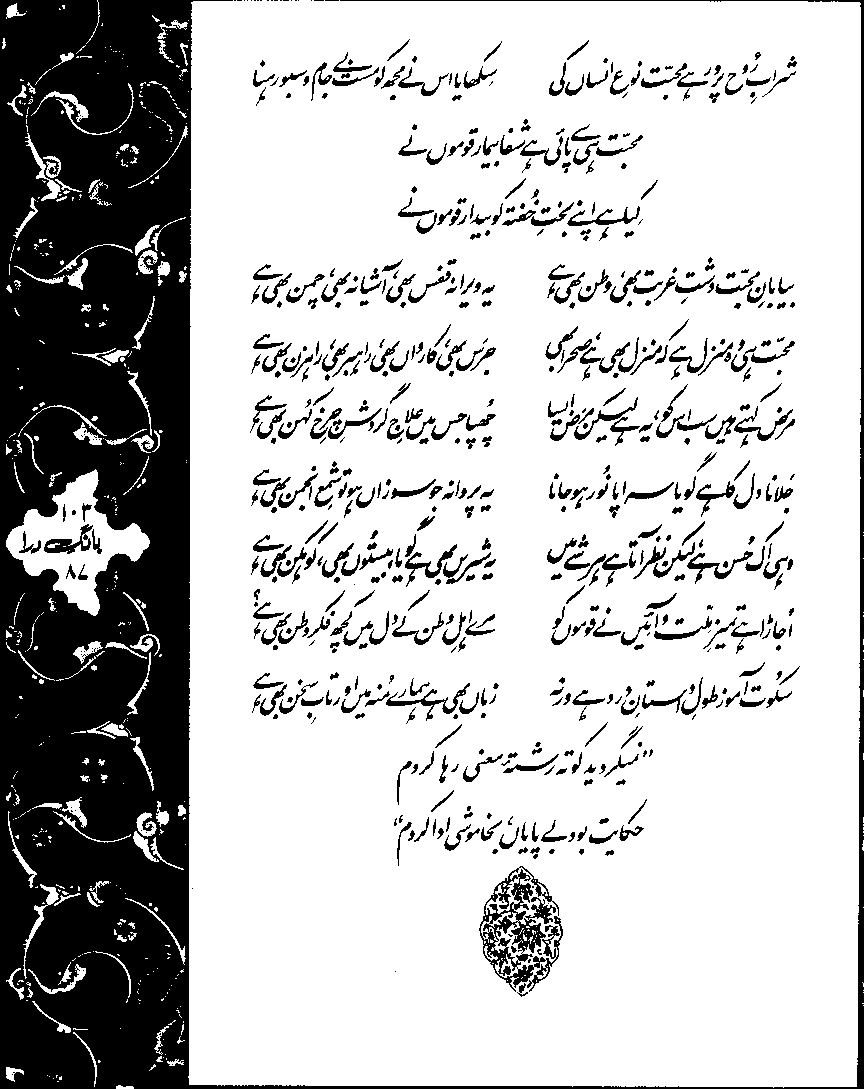 شرابِ رُوح پرور ہے محبّت نوعِ انساں کی سِکھایا اس نے مجھ کو مست بے جام و سبو رہنا
محبّت ہی سے پائی ہے شفا بیمار قوموں نے
کِیا ہے اپنے بختِ خُفتہ کو بیدار قوموں نے
بیابانِ محبّت دشتِ غربت بھی، وطن بھی ہے یہ ویرانہ قفس بھی، آشیانہ بھی، چمن بھی ہے
محبّت ہی وہ منزل ہے کہ منزل بھی ہے، صحرا بھی جرَس بھی، کارواں بھی، راہبر بھی، راہزن بھی ہے
مرَض کہتے ہیں سب اس کو، یہ ہے لیکن مرَض ایسا چھُپا جس میں علاجِ گردشِ چرخِ کُہن بھی ہے
جَلانا دل کا ہے گویا سراپا نُور ہو جانا یہ پروانہ جو سوزاں ہو تو شمعِ انجمن بھی ہے
وہی اک حُسن ہے، لیکن نظر آتا ہے ہر شے میں یہ شیریں بھی ہے گویا، بیستُوں بھی، کوہکن بھی ہے
اُجاڑا ہے تمیزِ ملّت و آئِیں نے قوموں کو مرے اہلِ وطن کے دل میں کچھ فکرِ وطن بھی ہے؟
سکُوت آموز طولِ داستانِ درد ہے ورنہ زباں بھی ہے ہمارے مُنہ میں اور تابِ سخن بھی ہے
"نمیگردید کوتہ رشتۂ معنی رہا کردم
حکایت بود بے پایاں، بخاموشی ادا کردم"
۱۰۳
بانگِ درا
۸۷